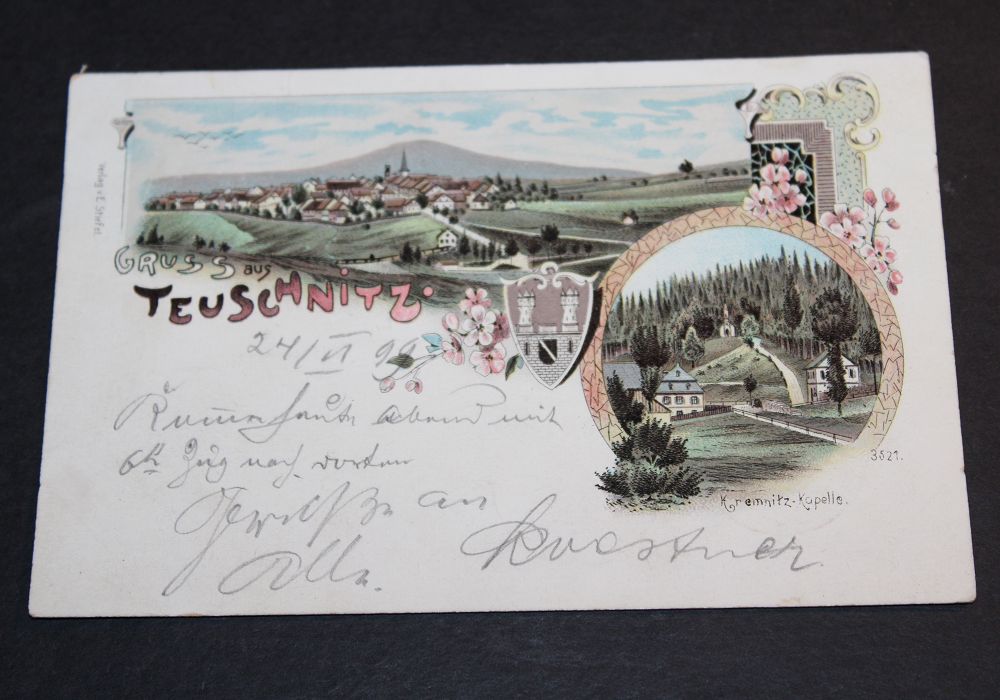 Verlag v. E. Stiefel
GRUSS aus
TEUSCHNITZ.
3521.
Kremnitz-Kapelle.
24/VI 99
Komme heute abend mit
6h Zug nach dorten
Grüße an
Alle. Koestner